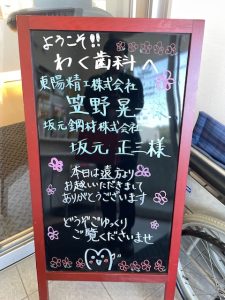 ようこそ!!
わく歯科へ
東陽精工株式会社
笠野 晃一様
坂元鋼材株式会社
坂元 正三様
本日は遠方より
お越しいただきまして
ありがとうございます
どうぞごゆっくり
ご覧くださいませ